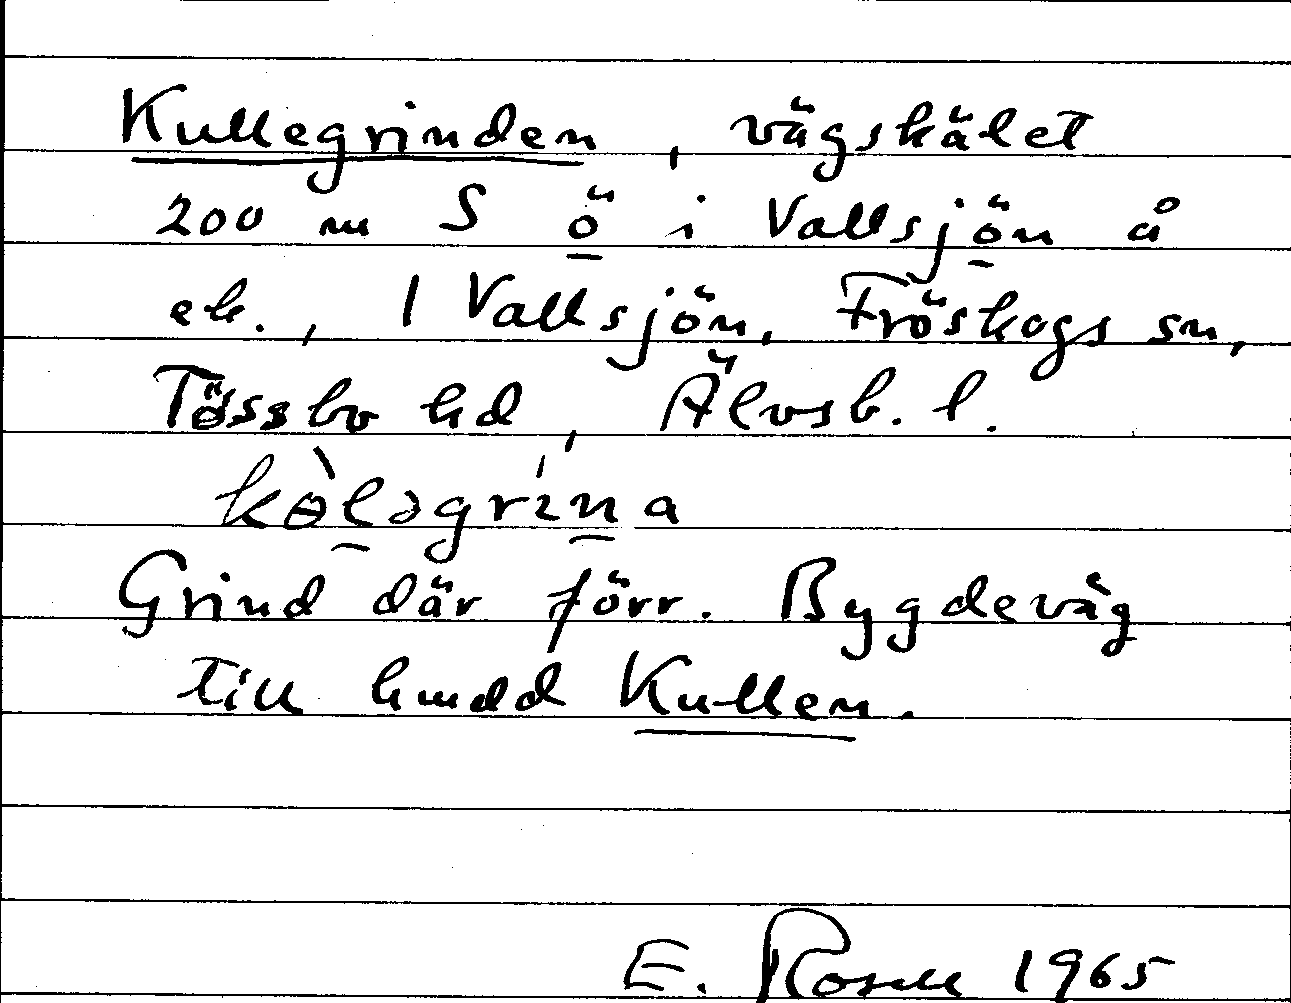 Kullegrinden, vägskälet
200 m S ö i Vallsjön å
ek., 1 Vallsjön, Fröskogs sn,
Tössbo hd, Älvsb. l.
kɵ̀lǝgrína
Grind där förr. Bygdeväg
till hmdd Kullen.
E. Rosell 1965